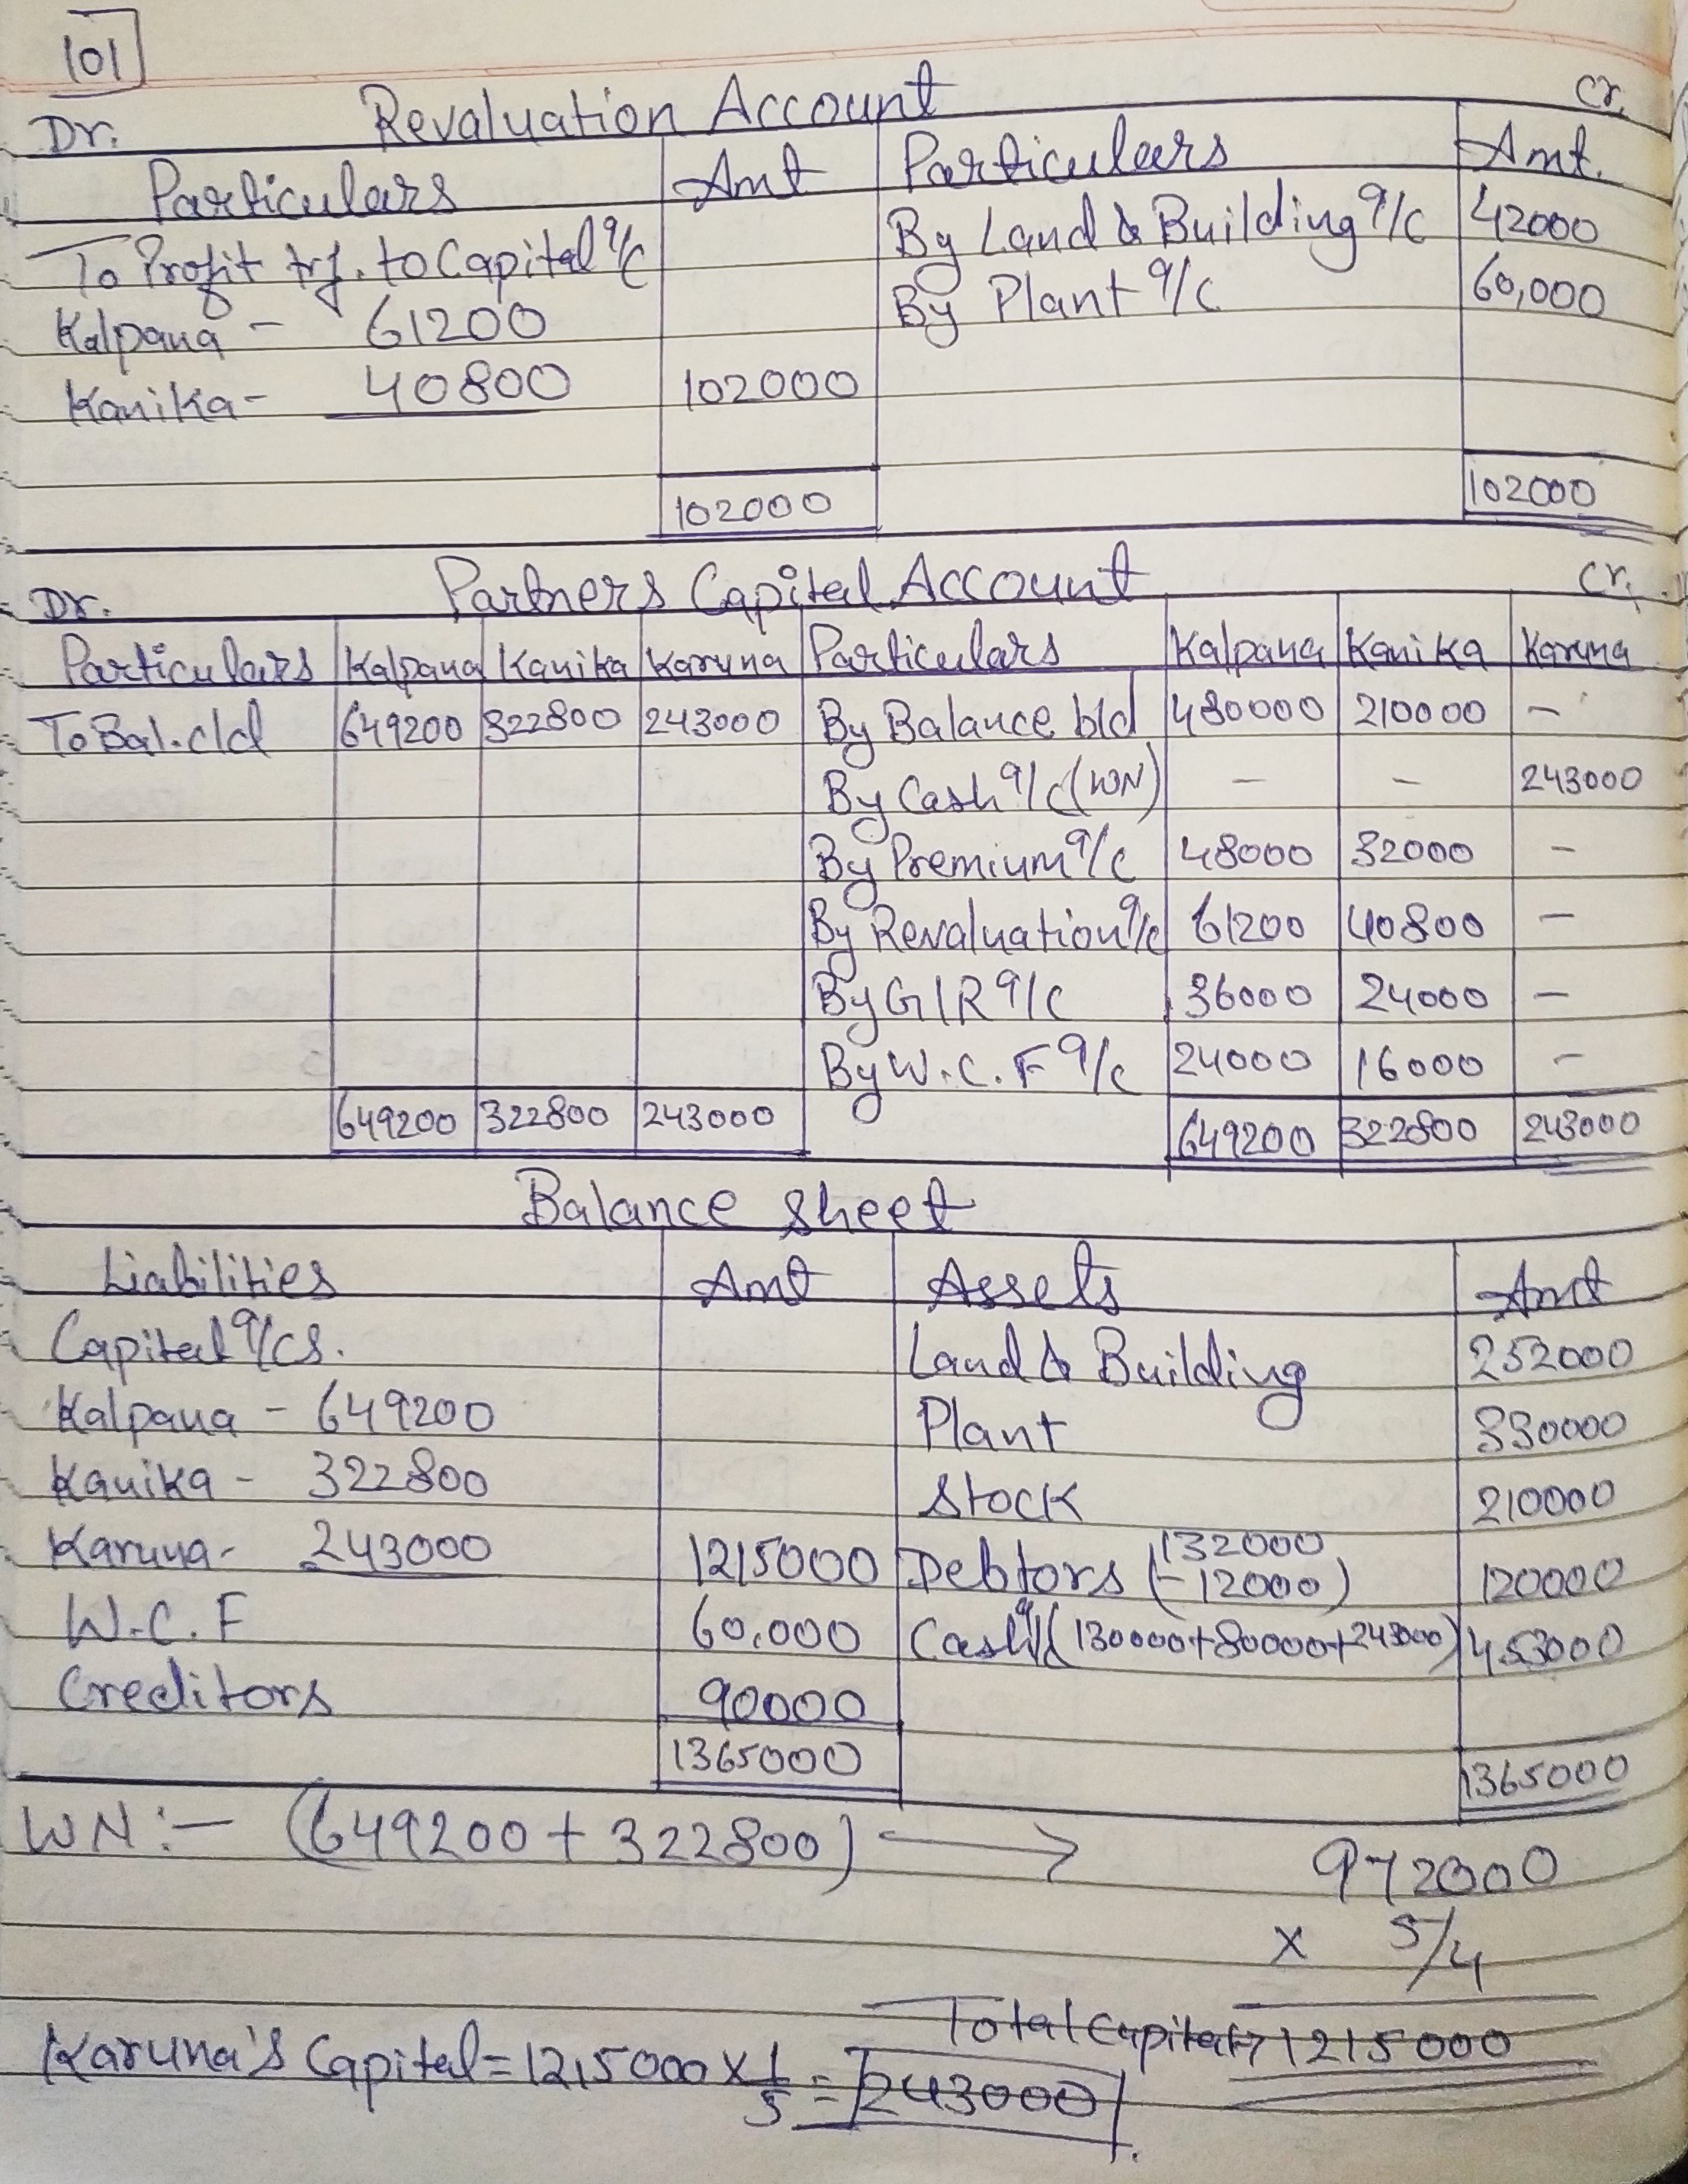 101
Revaluation Account
Dr. Cr.
Particulars Amt Particulars Amt.
To Profit trf. to Capital a/c By Land & Building a/c 42000
Kalpana - 61200 By Plant a/c 60,000
Kanika - 40800 102000
102000 102000
Partners Capital Account
Dr. Cr.
Particulars Kalpana Kanika Karuna Particulars Kalpana Kanika Karuna
To Bal. c/d 649200 322800 243000 By Balance b/d 480000 210000 -
By Cash a/c (WN) - - 243000
By Premium a/c 48000 32000 -
By Revaluation a/c 61200 40800 -
By G/R a/c 36000 24000 -
By W.C.F a/c 24000 16000 -
649200 322800 243000 649200 322800 243000
Balance Sheet
Liabilities Amt Assets Amt
Capital a/cs. Land & Building 252000
Kalpana - 649200 Plant 330000
Kanika - 322800 Stock 210000
Karuna - 243000 1215000 Debtors (132000 - 12000) 120000
W.C.F 60,000 Cash a/c (130000+80000+243000) 453000
Creditors 90000
1365000 1365000
WN:- (649200 + 322800) → 972000
x 5/4
Total Capital → 1215000
Karuna's Capital = 1215000 x 1/5 = 243000